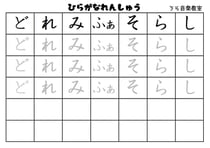 ひらがなれんしゅう
音楽教室
ど れ み ふぁ そ ら し
ど れ み ふぁ そ ら し
ど れ み ふぁ そ ら し
ど れ み ふぁ そ ら し